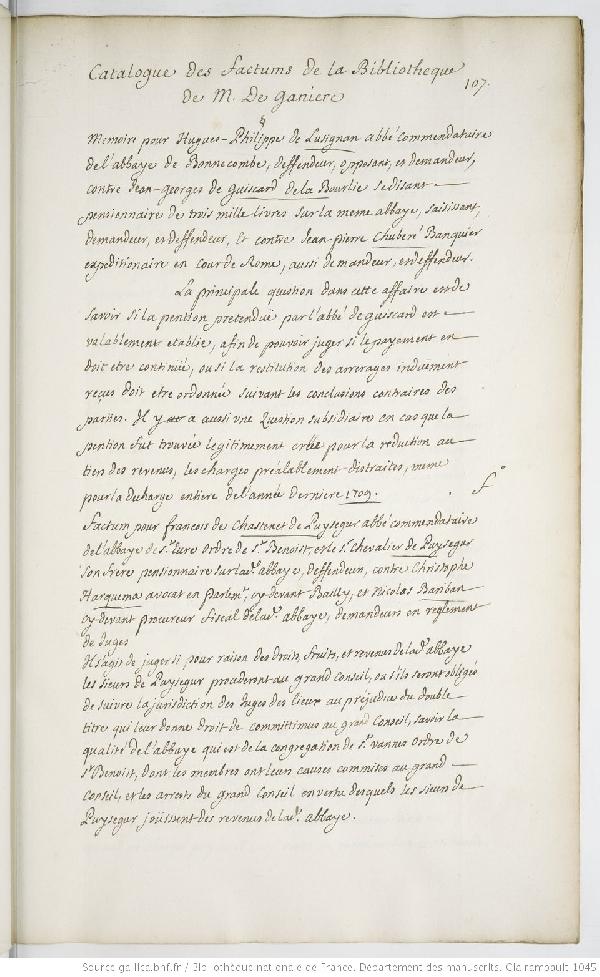 Catalogue des factums de la Bibliotheque
de M. De ganiere
107.
§
Memoire pour Hugues-Philippe de Lusignan abbé commendataire
de l'abbaye de Bonnecombe, deffendeur, opposant, et demandeur,
contre Jean-georges de Guiscard de la Bourlie se disant
pensionnaire de trois mille livres sur la meme abbaye, saisissant,
demandeur, et deffendeur, Et contre Jean-pierre Chuberé Banquier
expeditionaire en cour de Rome, aussi demandeur, et deffendeur.
La principale question dans cette affaire est de
savoir si la pention pretenduë par l'abbé de guiscard est
valablement etablie, afin de pouvoir juger si le payement en
doit etre continué, ou si la restitution des arrerages induement
reçus doit etre ordonnée suivant les conclusions contraires des
parties. Il y a aussi une Question subsidiaire en cas que la
pention fut trouvée legitimement créée pour la reduction au
tiers des revenus, les charges préalablement distraites, meme
pour la décharge entiere de l'année derniere 1709.
f°
Factum pour francois de Chastenet de Puysegur abbé commendataire
de l'abbaye de St. Evre ordre de St. Benoist, et le Sr. Chevalier de Puysegur
son frere pensionnaire sur lad. abbaye, deffendeurs, contre Christophe
Harquema avocat en Parlemt., cy devant Bailly, et Nicolas Bariban
cy devant procureur fiscal de lad. abbaye, demandeurs en reglement
de Juges
Il s'agit de juger si pour raison des droits, fruits, et revenus de lad. abbaye
les sieurs de Puysegur procederont au grand Conseil, ou s'ils seront obligés
de suivre la jurisdiction des Juges des lieux au préjudice du double
titre qui leur donne droit de committimus au grand Conseil, savoir la
qualité de l'abbaye qui est de la congregation de St. vannes ordre de
St. Benoist, dont les membres ont leurs causes commises au grand
Conseil, et les arrests du grand Conseil en vertu desquels les sieurs de
Puysegur joüissent des revenus de lad. abbaye.
Source gallica.bnf.fr / Bibliothèque nationale de France. Département des manuscrits. Clairambault 1045